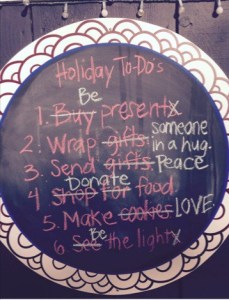 Holiday To-Do's
Be
1. Buy presents
2. Wrap gifts. someone
in a hug.
3. Send gifts. Peace
Donate
4 Shop for food
5. Make cookies LOVE.
Be
6 See the lights